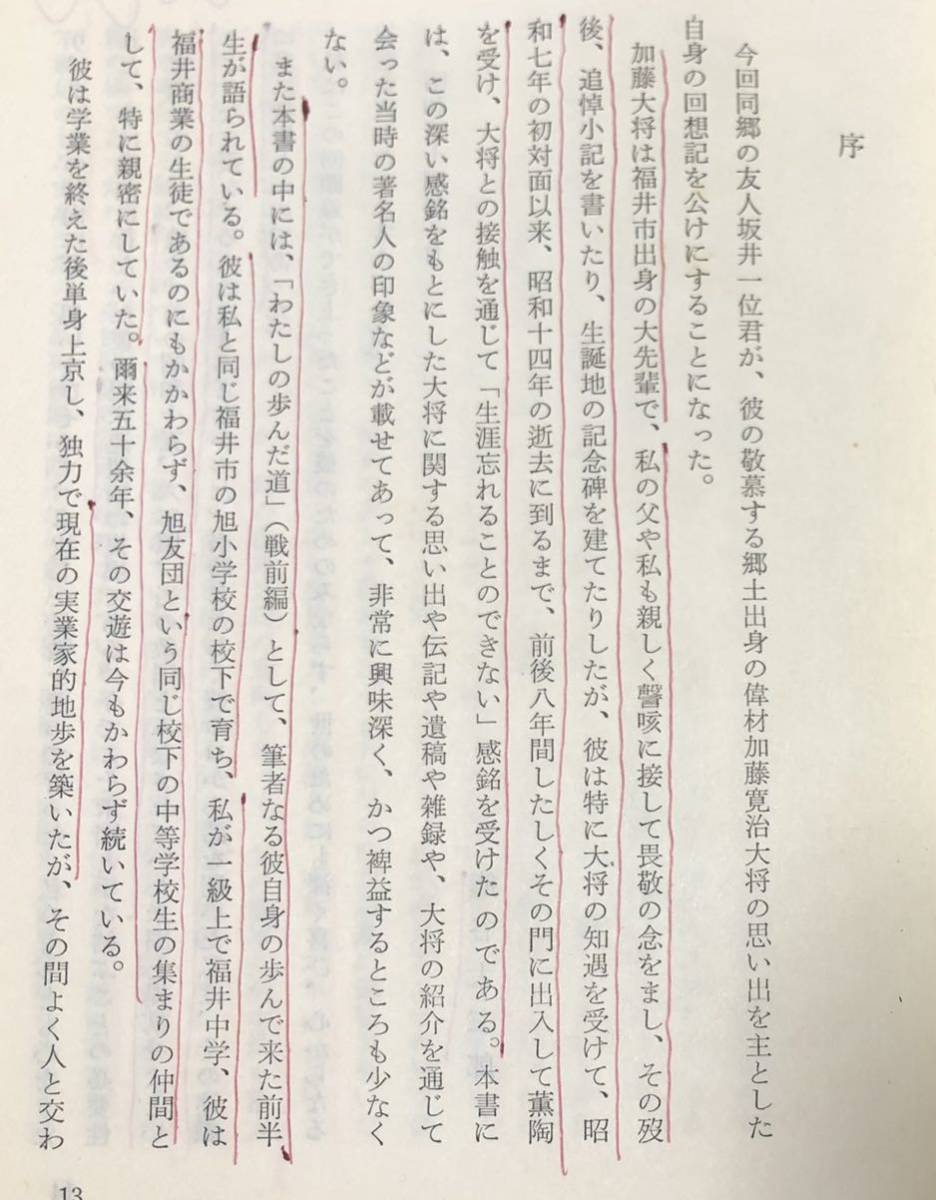 序
今回同郷の友人坂井一位君が、彼の敬慕する郷土出身の偉材加藤寛治大将の思い出を主とした
自身の回想記を公けにすることになった。
加藤大将は福井市出身の大先輩で、私の父や私も親しく謦咳に接して畏敬の念をまし、その歿
後、追悼小記を書いたり、生誕地の記念碑を建てたりしたが、彼は特に大将の知遇を受けて、昭
和七年の初対面以来、昭和十四年の逝去に到るまで、前後八年間したしくその門に出入して薫陶
を受け、大将との接触を通じて「生涯忘れることのできない」感銘を受けたのである。本書に
は、この深い感銘をもとにした大将に関する思い出や伝記や遺稿や雑録や、大将の紹介を通じて
会った当時の著名人の印象などが載せてあって、非常に興味深く、かつ裨益するところも少なく
ない。
また本書の中には、「わたしの歩んだ道」（戦前編）として、筆者なる彼自身の歩んで来た前半
生が語られている。彼は私と同じ福井市の旭小学校の校下で育ち、私が一級上で福井中学、彼は
福井商業の生徒であるのにもかかわらず、旭友団という同じ校下の中等学校生の集まりの仲間と
して、特に親密にしていた。爾来五十余年、その交遊は今もかわらず続いている。
彼は学業を終えた後単身上京し、独力で現在の実業家的地歩を築いたが、その間よく人と交わ
13